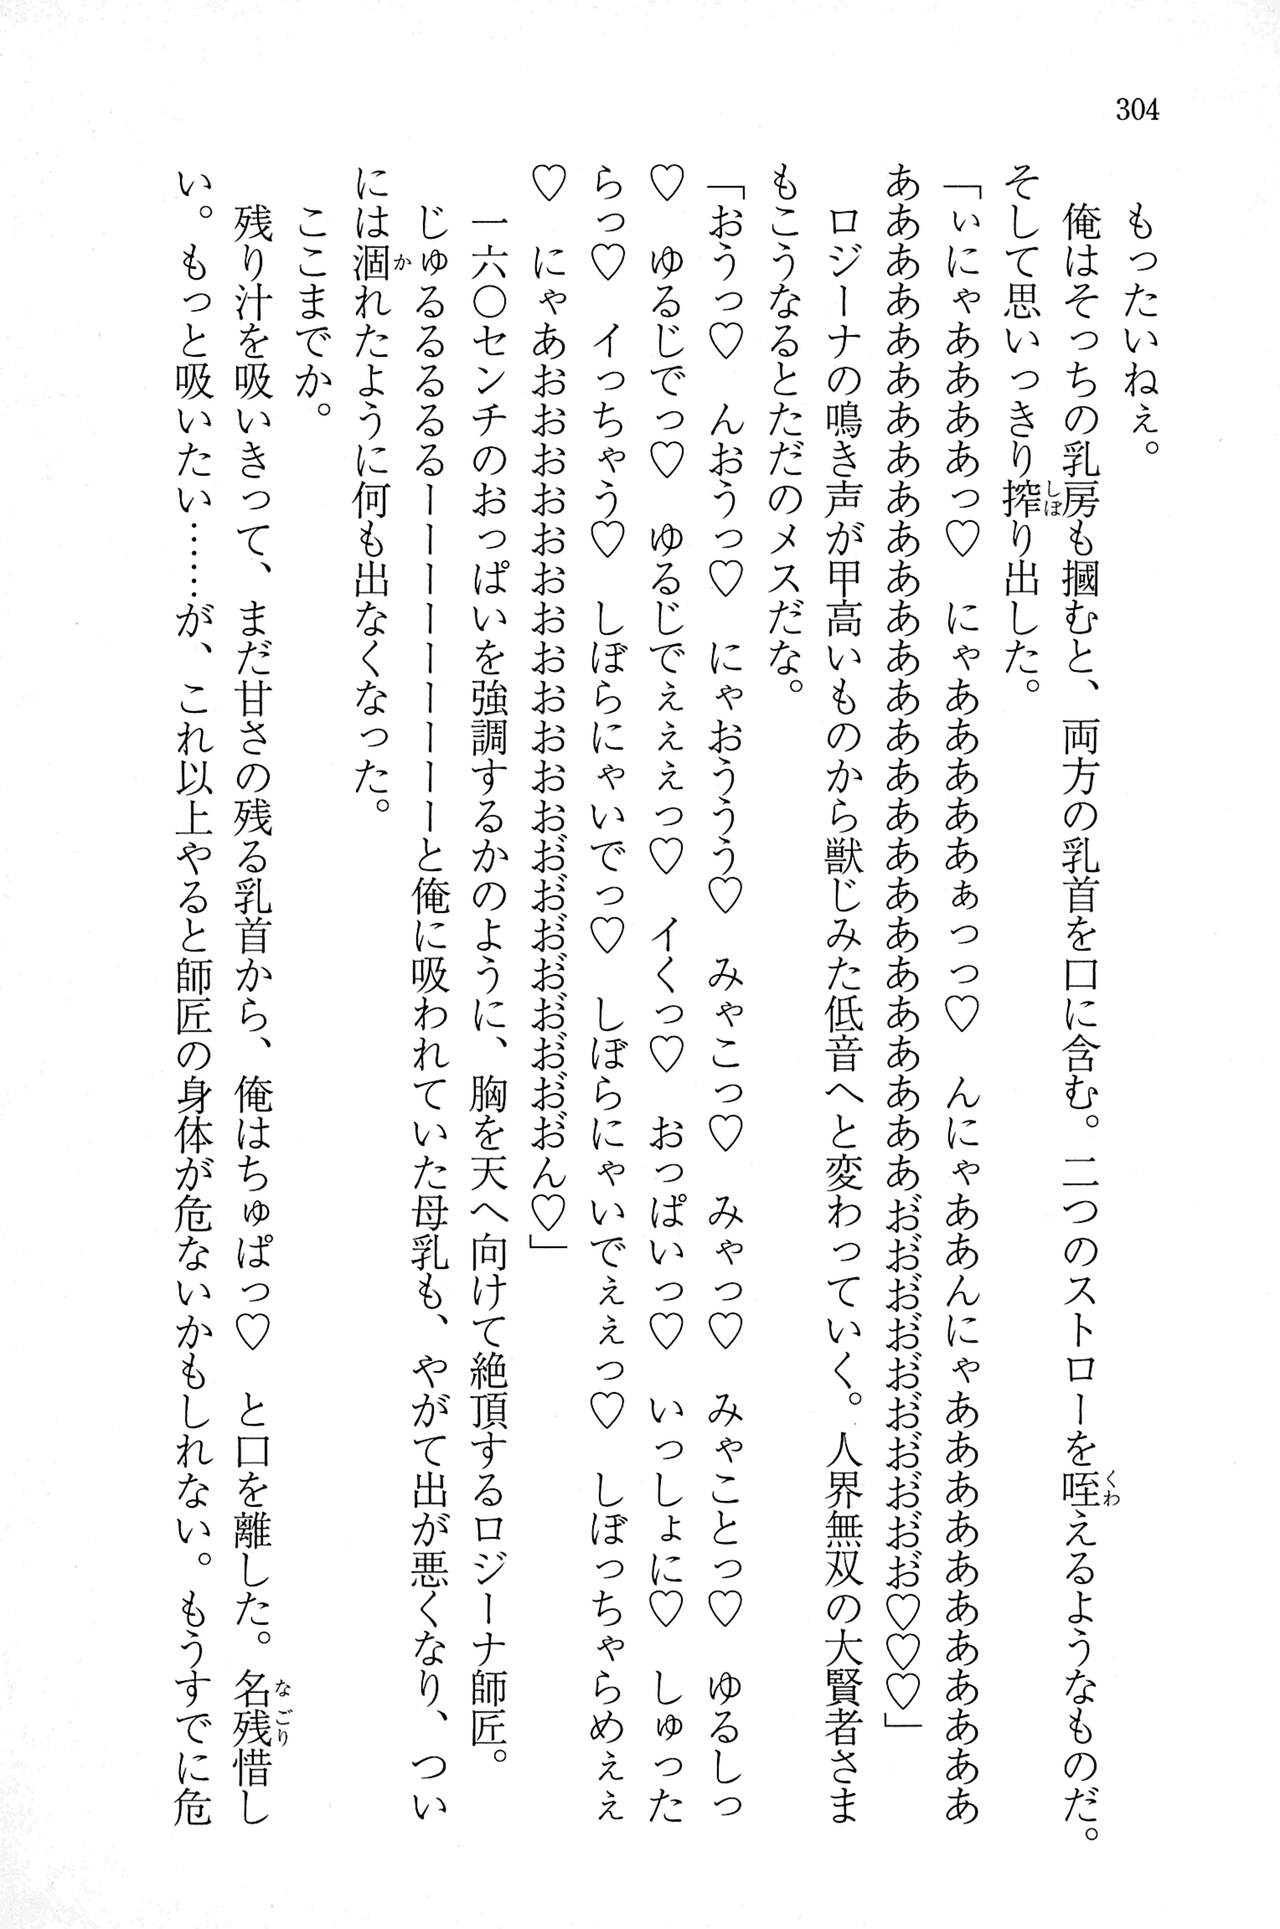 304
もったいねぇ。
俺はそっちの乳房も摑むと、両方の乳首を口に含む。二つのストローを咥えるようなものだ。
くわ
そして思いっきり搾り出した。
しぼ
「ぃにゃああああっ♡　にゃあああああぁっっ♡　んにゃああんにゃあああああああああああ
ああああああああああああああああああああああああああお゛お゛お゛お゛お゛お゛お゛お゛お゛お゛♡♡♡」
ロジーナの鳴き声が甲高いものから獣じみた低音へと変わっていく。人界無双の大賢者さま
もこうなるとただのメスだな。
「おうっ♡　んおうっ♡　にゃおううう♡　みゃこっ♡　みゃっ♡　みゃことっ♡　ゆるしっ
♡　ゆるじでっ♡　ゆるじでぇぇぇっ♡　イくっ♡　おっぱいっ♡　いっしょに♡　しゅった
らっ♡　イっちゃう♡　しぼらにゃいでっ♡　しぼらにゃいでぇぇっ♡　しぼっちゃらめぇぇ
♡　にゃあおおおおおおおおおおおおお゛お゛お゛お゛お゛お゛お゛お゛ん♡」
一六〇センチのおっぱいを強調するかのように、胸を天へ向けて絶頂するロジーナ師匠。
じゅるるるるるーーーーーーーーーと俺に吸われていた母乳も、やがて出が悪くなり、つい
には涸れたように何も出なくなった。
か
ここまでか。
残り汁を吸いきって、まだ甘さの残る乳首から、俺はちゅぱっ♡　と口を離した。名残惜し
なごり
い。もっと吸いたい……が、これ以上やると師匠の身体が危ないかもしれない。もうすでに危